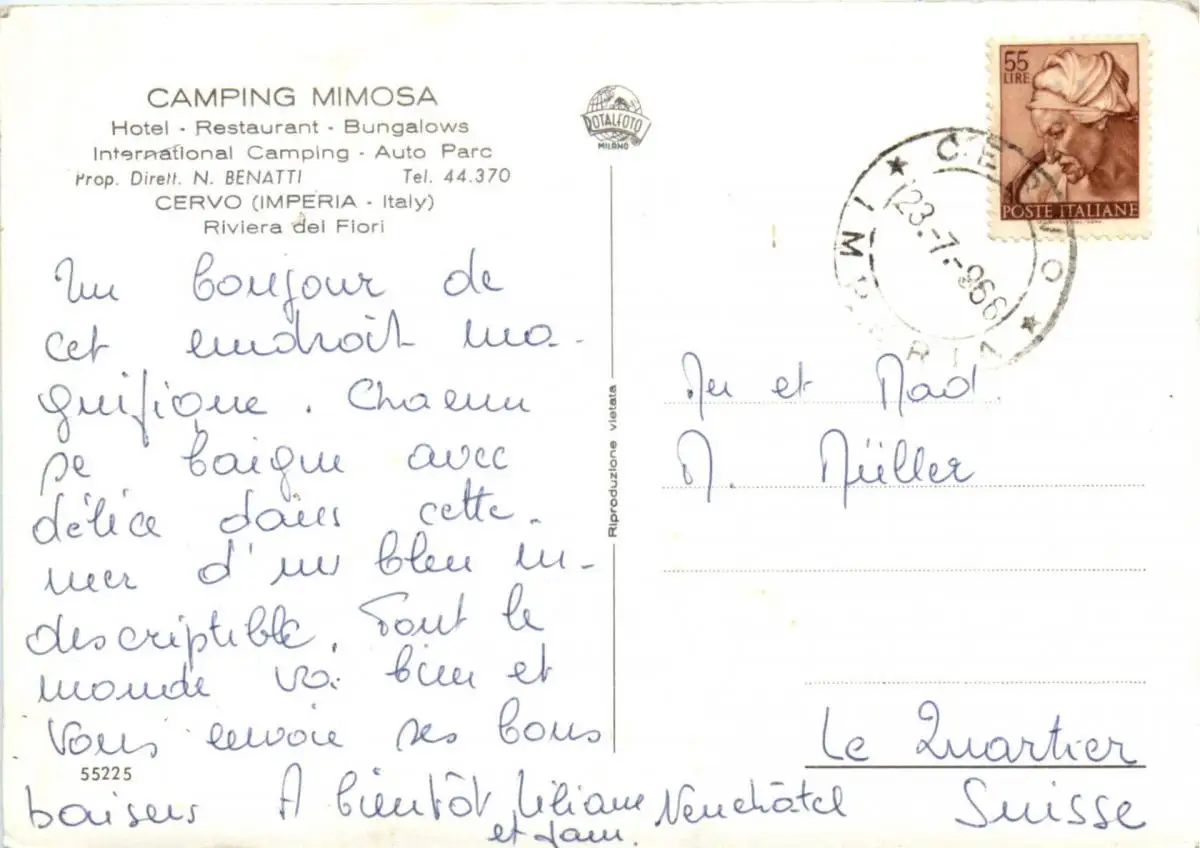 CAMPING MIMOSA
Hotel - Restaurant - Bungalows
International Camping - Auto Parc
Prop. Dirett. N. BENATTI Tel. 44.370
CERVO (IMPERIA - Italy)
Riviera dei Fiori
Un bonjour de
cet endroit ma-
gnifique. Chacun
se baigne avec
délice dans cette
mer d'un bleu in-
descriptible. Tout le
monde va bien et
vous envoie ses bons
55225
baisers A bientôt Liliane
et fam.
ROTALFOTO
MILANO
Riproduzione vietata
55
LIRE
POSTE ITALIANE
CERVO
23.-7.-966
IMPERIA
Mr et Mad.
M. Müller
Le Quartier
Neuchâtel Suisse